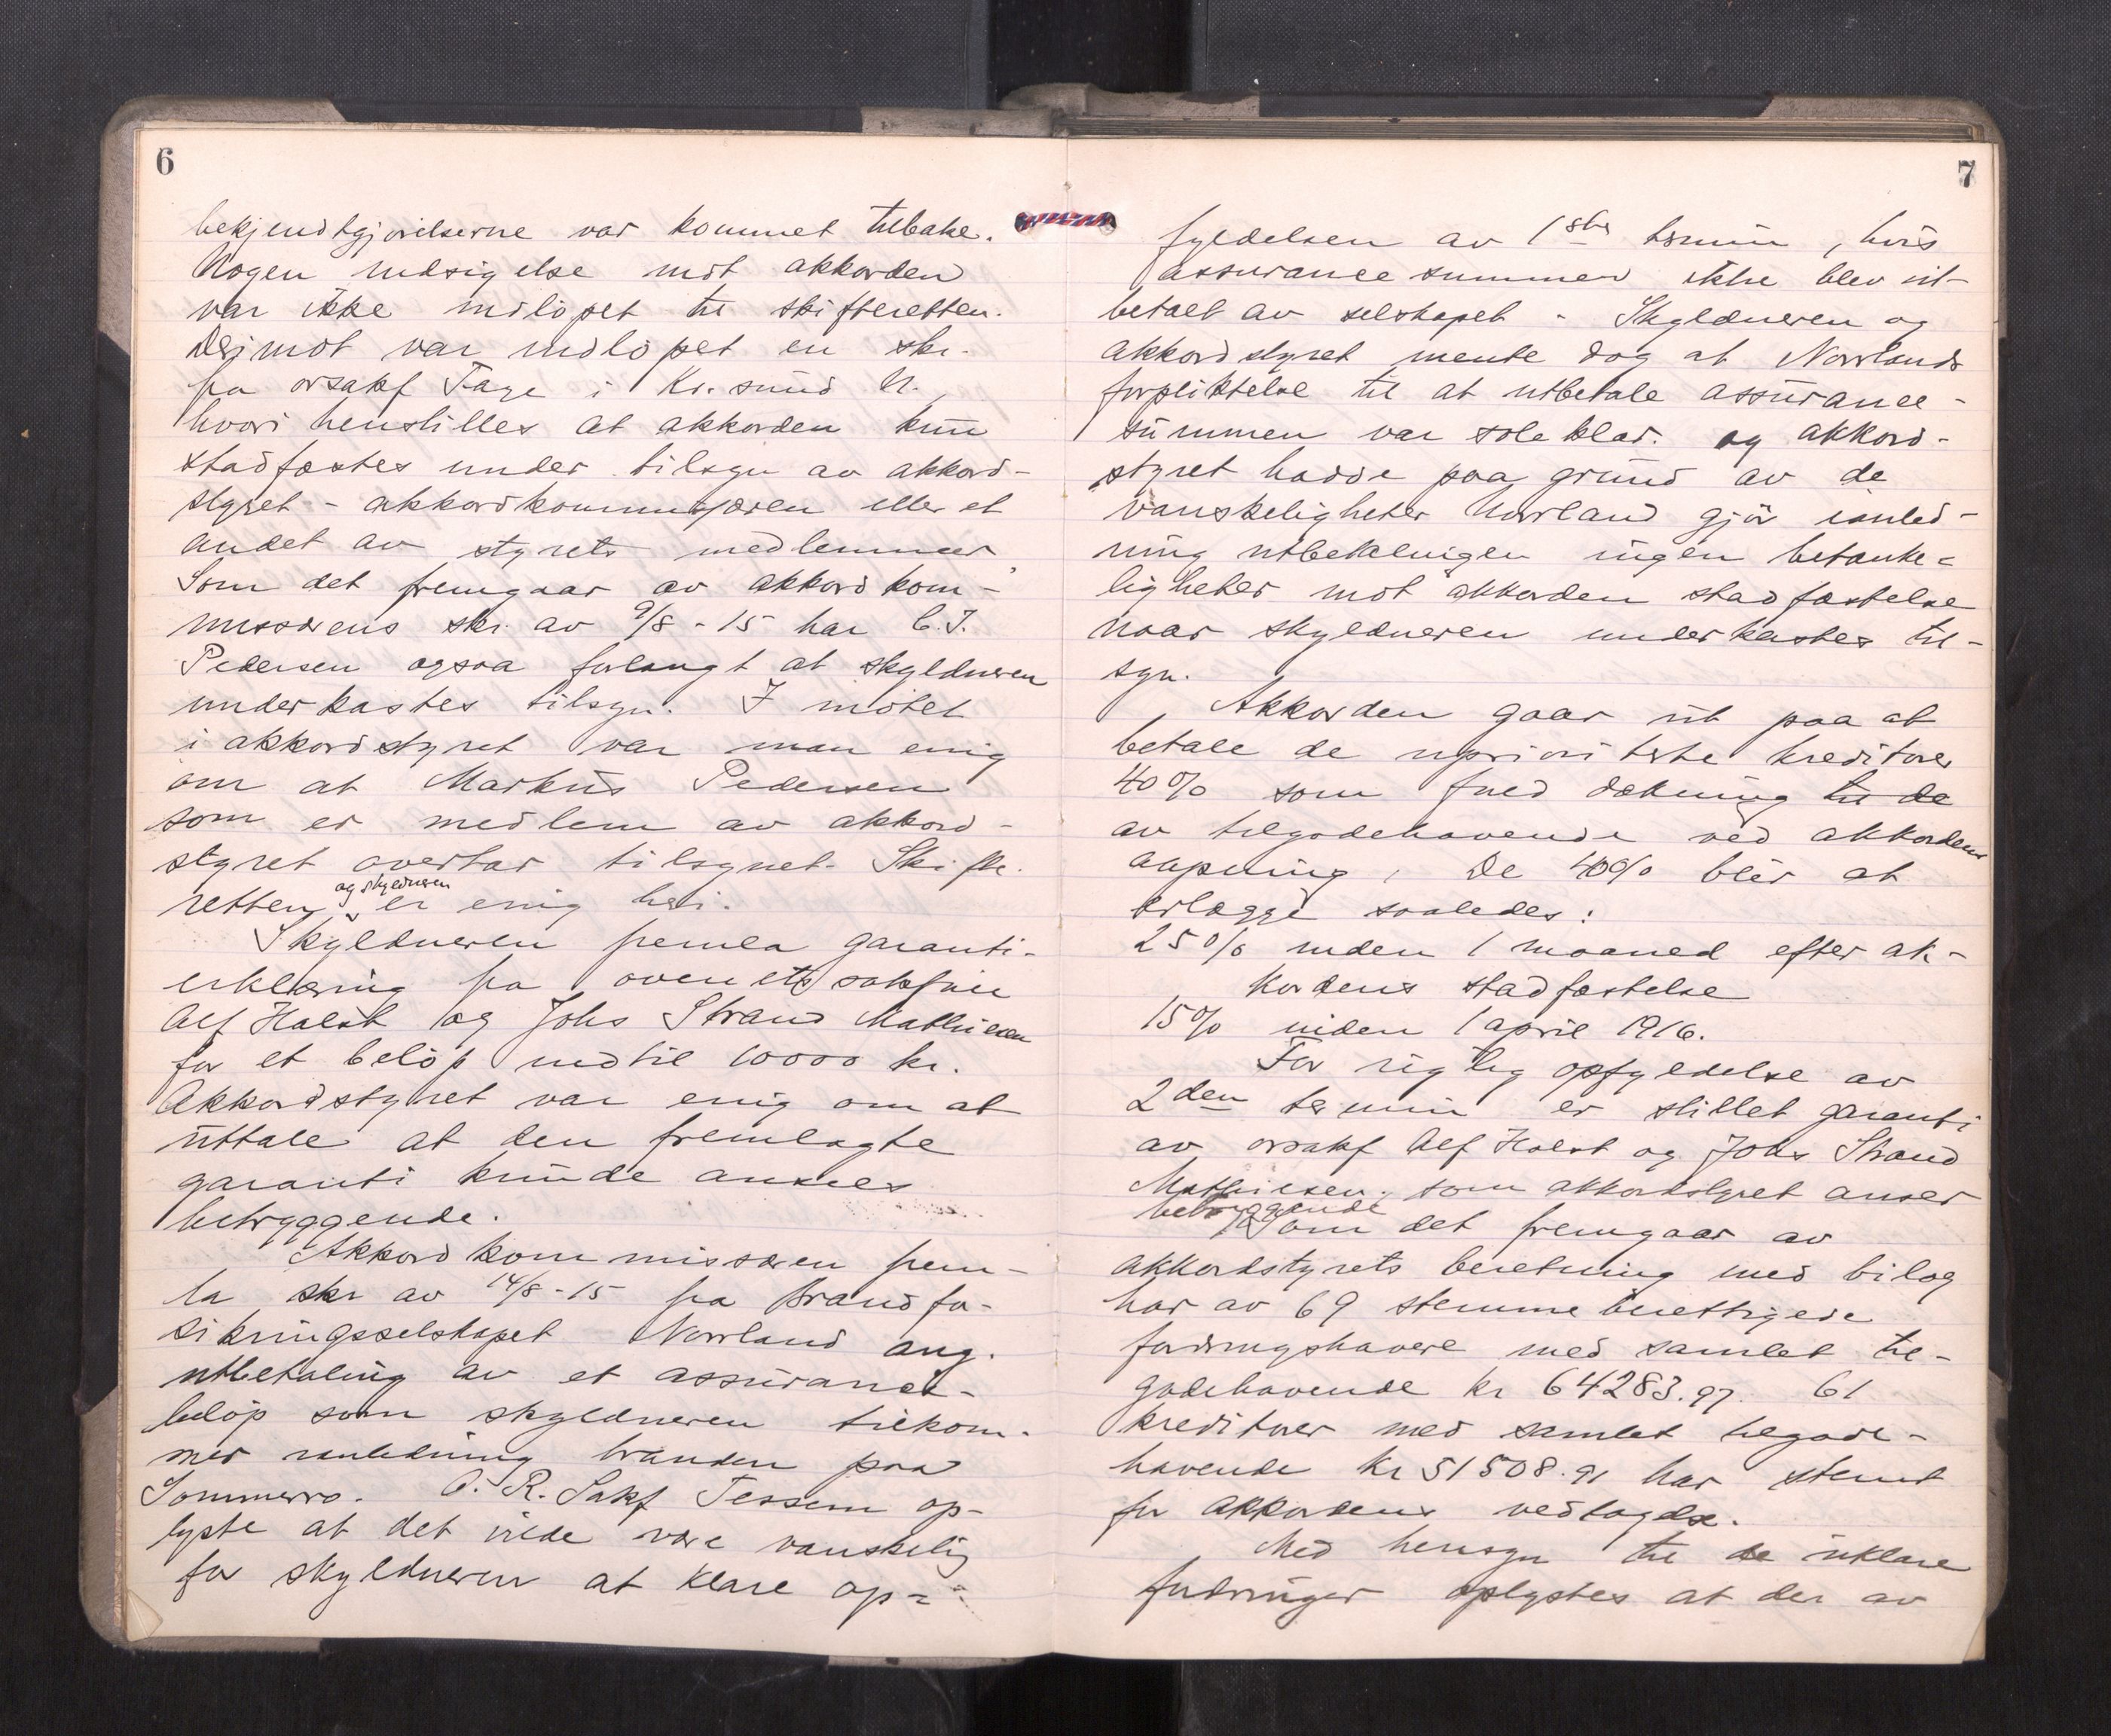 6
bekjendtgjørelserne var kommet tilbake.
Nogen indsigelse mot akkorden
var ikke indløpet til skifteretten.
Derimot var indløpet en skr.
fra orsakf Tage i Kr. sund N.
hvori henstilles at akkorden kun
stadfæstes under tilsyn av akkord-
styret - akkordkommissæren eller et
andet av styrets medlemmer.
Som det fremgaar av akkordkom-
missærens skr. av 9/8-15 har C. J.
Pedersen ogsaa forlangt at skyldneren
underkastes tilsyn. I møtet
i akkordstyret var man enig
om at Markus Pedersen
som er medlem av akkord-
styret overtar tilsynet. Skifte-
retten og skyldneren er enig heri.
Skyldneren fremla garanti-
erklæring fra overrettssakfører
Alf Holst og Johs Strand Mathiesen
for et beløp indtil 10000 kr.
Akkordstyret var enig om at
uttale at den fremlagte
garanti kunde ansees
betryggende.
Akkordkommissæren frem-
la skr av 14/8-15 fra Brandfor-
sikringsselskapet Norrland ang.
utbetaling av et assurance-
beløp som skyldneren tilkom-
mer i anledning branden paa
Sommerro. O. R. Sakf Tessem op-
lyste at det vilde være vanskelig
for skyldneren at klare op-
7
fyldelsen av 1ste termin, hvis
assurancesummen ikke blev ut-
betalt av selskapet - Skyldneren og
akkordstyret mente dog at Norrlands
forpliktelse til at utbetale assurance-
summen var soleklar. og akkord-
styret hadde paa grund av de
vanskeligheter Norrland gjør ianled-
ning utbetalingen ingen betænke-
ligheter mot akkorden stadfæstelse
naar skyldneren underkastes til-
syn.
Akkorden gaar ut paa at
betale de uprioriterte kreditorer
40% som fuld dækning til de
av tilgodehavende ved akkordens
aapning. De 40% blir at
erlægge saaledes:
25% inden 1 maaned efter ak-
kordens stadfæstelse
15% inden 1 april 1916.
For rigtig opfyldelse av
2den termin er stillet garanti
av orsakf Alf Holst og Johs Strand
Mathiesen, som akkordstyret anser
betryggende
Som det fremgaar av
akkordstyrets beretning med bilag
har av 69 stemmeberettigede
fordringshavere med samlet til-
godehavende kr 64283.97. 61
kreditorer med samlet tilgode-
havende kr 51508.91 har stemt
for akkordens vedtagelse.
Med hensyn til de uklare
fordringer oplystes at der av